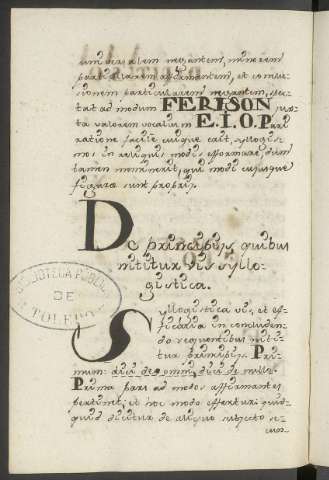 universalem negantem, minorem
particularem affirmantem, et conclu-
sionem particularem negantem, spec-
tat ad modum FERISON jux-
ta valorem vocalium E.I.O. Pari
ratione facile cuique erit, syllogis-
mos in reliquis modis efformare, dum
tamen meminerit, qui modi cujusque
figurae sunt proprij.
De principijs, quibus
nititur vis syllo-
gistica.
BIBLIOTECA PUBLICA
DE
TOLEDO
Syllogistica vis, et ef-
ficatia in concluden-
do sequentibus niti-
tur principijs. Pri-
mum: dici de omni, dici de nullo.
Prima pars ad modos affirmantes
pertinet, et hoc modo effertur: quid-
quid dicitur de aliquo subjecto